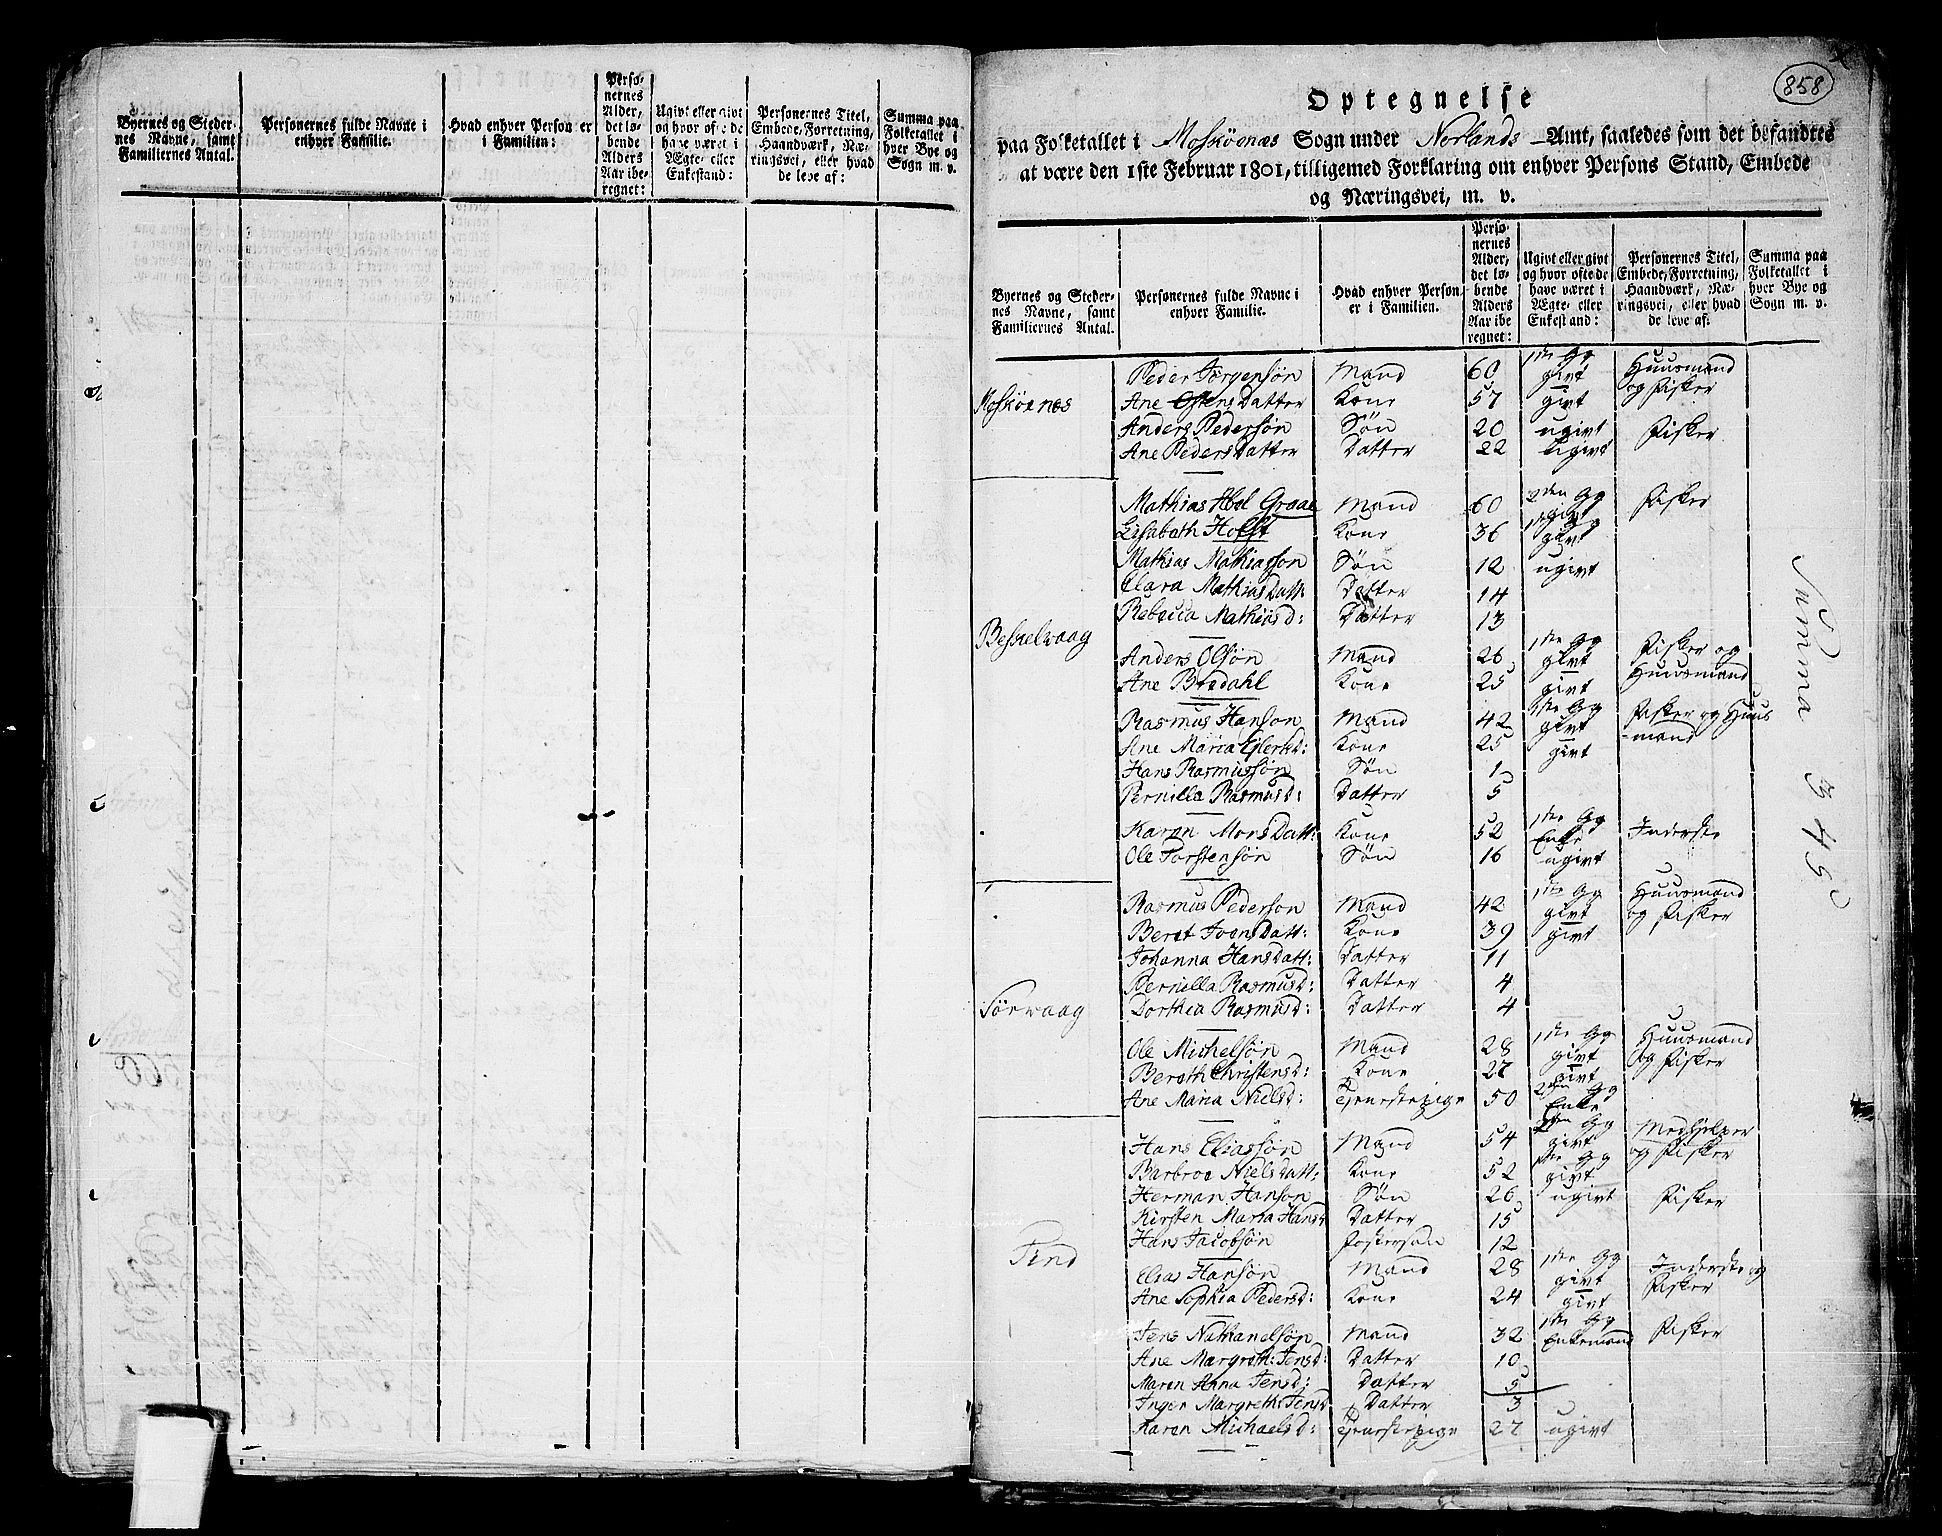 Byernes og Steder-
nes Navne, samt
Familiernes Antal.
Personernes fulde Navne i
enhver Familie.
Hvad enhver Person er
i Familien:
Perso-
nernes
Alder,
det lø-
bende
Alders
Aar ibe-
regnet:
Ugivt eller givt
og hvor ofte de
have været i
Ægte- eller
Enkestand:
Personernes Titel,
Embede, Forretning,
Haandværk, Næ-
ringsvei, eller hvad
de leve af:
Summa paa
Folketallet i
hver Bye og
Sogn m. v.
858
Optegnelse
paa Folketallet i Moskøenæs Sogn under Norlands Amt, saaledes som det befandtes
at være den 1ste Februar 1801, tilligemed Forklaring om enhver Persons Stand, Embede
og Næringsvei, m. v.
Byernes og Steder-
nes Navne, samt
Familiernes Antal.
Personernes fulde Navne i
enhver Familie.
Hvad enhver Person
er i Familien.
Perso-
nernes
Alder,
det lø-
bende
Alders
Aar ibe-
regnet:
Ugivt eller givt
og hvor ofte de
have været i
Ægte- eller
Enkestand:
Personernes Titel,
Embede, Forretning,
Haandværk, Næ-
ringsvei, eller hvad
de leve af:
Summa paa
Folketallet i
hver Bye og
Sogn m. v.
Peder Jørgensøn Mand 60 1ste Gg givt Huusmand
Moskøenes Ane Ostens Datter Kone 57 givt og Fisker
Anders Pedersøn Søn 20 ugivt Fisker
Ane Peders Datter Datter 22 ugivt
Mathias Abel Graae Mand 60 2den Gg givt Fisker
Elisabath Hofst Kone 36 1ste Gg givt
Mathias Mathiasson Søn 12 ugivt
Clara Mathias Datt: Datter 14
Rebecca Mathiasd: Datter 13
Besselwaag
Anders Olsøn Mand 26 1ste Gg givt Fisker og
Ane Bredahl Kone 25 givt Huusmand
Rasmus Hanson Mand 42 1ste Gg givt Fisker og Huus
Ane Maria Eilertsd: Kone 25 givt -mand
Hans Rasmussøn Søn 1
Pernilla Rasmusd: Datter 5
Karen Mons Datt: Kone 52 1ste Gg Enke Inderste
Ole Torstensøn Søn 16 ugivt
Rasmus Pederson Mand 42 1ste Gg givt Huusmand
Beret Ivers Datt: Kone 39 givt og Fisker
Johanna Hans Datt: Datter 11
Pernilla Rasmusd: Datter 4
Sørwaag Dorthea Rasmusd: Datter 4
Ole Michelsøn Mand 28 1ste Gg givt Huusmand
Berath Christensd: Kone 27 givt og Fisker
Ane Maria Nielsd: Tienestepige 50 2den Gg Enke
Hans Eliassøn Mand 54 2den Gg givt Medhielper
Barbroe Niels Datt: Kone 52 1ste Gg givt og Fisker
Herman Hanson Søn 26 ugivt Fisker
Kirsten Maria Hansd Datter 15
Hans Jacobsøn Fostersøn 12
Tind
Elias Hansøn Mand 28 1ste Gg givt Inderste og
Ane Sophia Pedersd: Kone 24 givt Fisker
Jens Nathanelsøn Mand 32 1ste Gg Enkemand Fisker
Ane Margreth: Jensd: Datter 10
Maren Anna Jensd: Datter 5
Inger Margreth: Jensd Datter 3
Karen Michaelsd: Tienestepige 27 ugivt
Summa 345